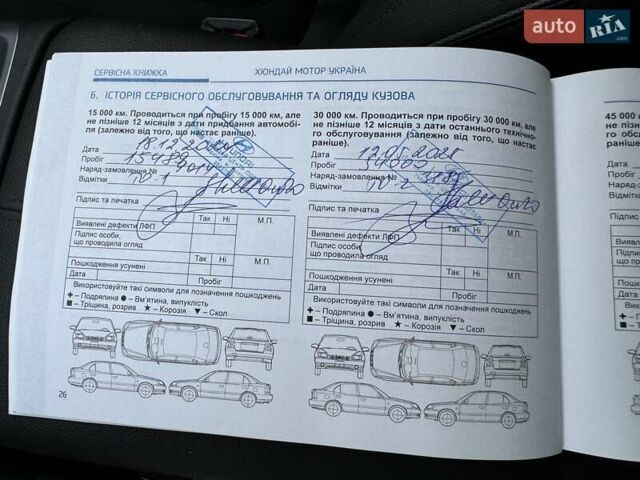 auto RIA.com
СЕРВІСНА КНИЖКА
ХЮНДАЙ МОТОР УКРАЇНА
6. ІСТОРІЯ СЕРВІСНОГО ОБСЛУГОВУВАННЯ ТА ОГЛЯДУ КУЗОВА
15 000 км. Проводиться при пробігу 15 000 км, але
не пізніше 12 місяців з дати придбання автомобі-
ля (залежно від того, що настає раніше).
Дата 18.12.
Пробіг
Наряд-замовлення №
Відмітки ТО-1
Підпис та печатка
Так Ні М.П.
Виявлені дефекти ЛФП
Підпис особи,
що проводила огляд
Пошкодження усунені М.П.
Дата Пробіг
Використовуйте такі символи для позначення пошкоджень
+ – Подряпина ● – Вм'ятина, випуклість
■ – Тріщина, розрив ★ – Корозія ▼ – Скол
26
30 000 км. Проводиться при пробігу 30 000 км, але
не пізніше 12 місяців з дати останнього технічно-
го обслуговування (залежно від того, що настає
раніше).
Дата
Пробіг
Наряд-замовлення №
Відмітки ТО-2
Підпис та печатка
Так Ні М.П.
Виявлені дефекти ЛФП
Підпис особи,
що проводила огляд
Пошкодження усунені М.П.
Дата Пробіг
Використовуйте такі символи для позначення пошкоджень
+ – Подряпина ● – Вм'ятина, випуклість
■ – Тріщина, розрив ★ – Корозія ▼ – Скол
45 000
раніше).
Дата
Пробіг
Наряд
Відмітки
Підпис
Виявлені
Підпис
що